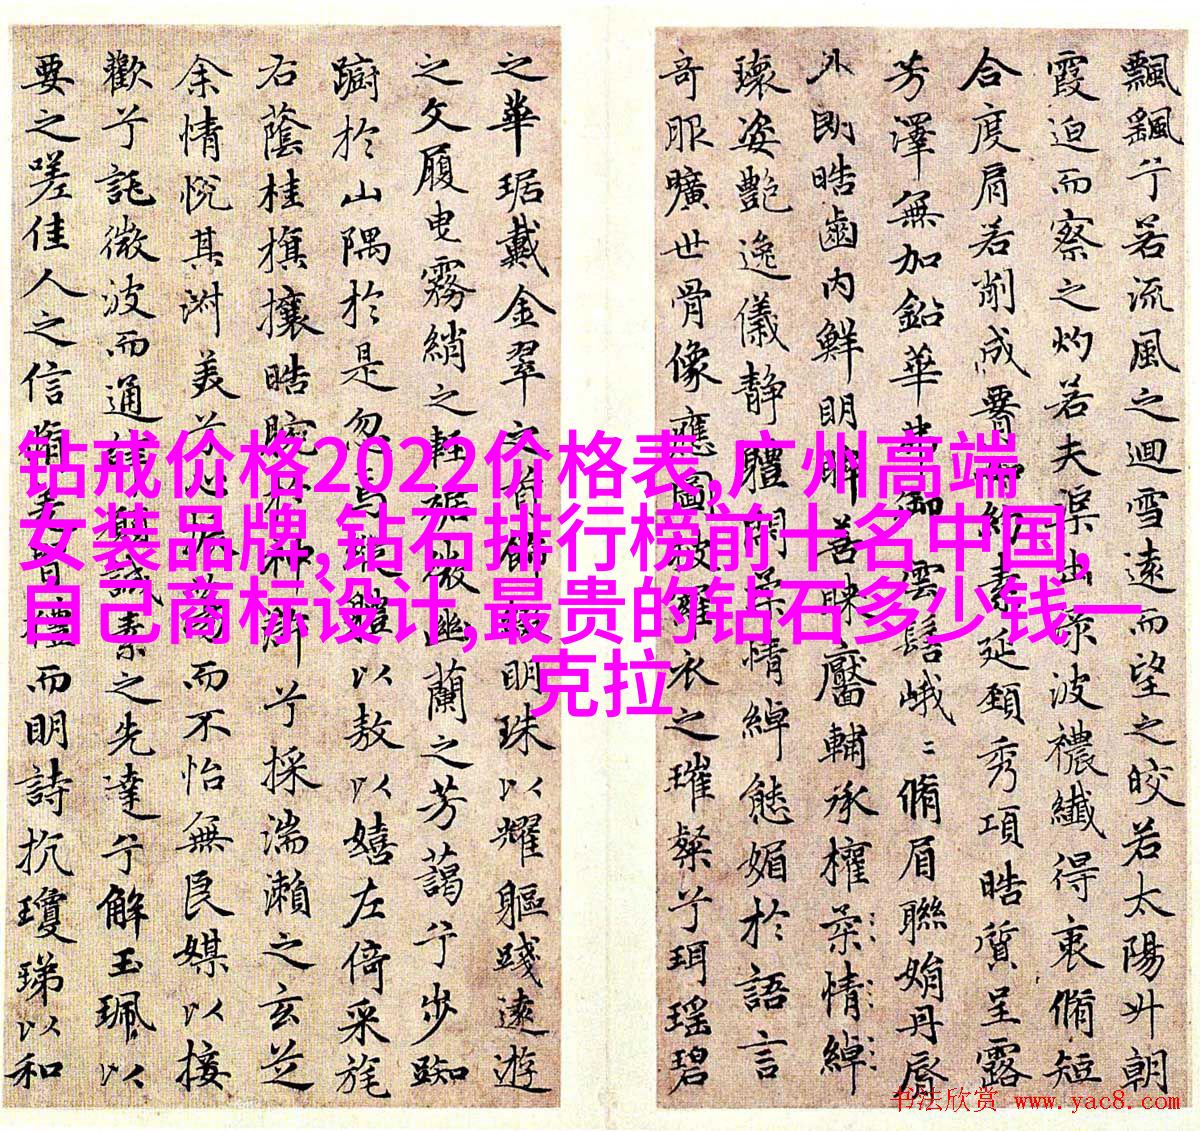 钻戒价格2022价格表,广州高端
女装品牌,钻石排行榜前十名中国,
自己商标设计,最贵的钻石多少钱一
克拉
飄颻兮若流風之迴雪遠而望之皎若太陽升朝
霞迫而察之灼若夫渠出淥波襛纖得衷脩短
合度肩若削成腰如約素延頸秀項皓質呈露
芳澤無加鉛華弗御雲髻峨〻脩眉聯娟丹唇
外朗皓齒內鮮明眸善睞靨輔承權柔情綽
瓌姿艷逸儀静體閑柔情綽態媚於語言
奇服曠世骨像應圖披羅衣之璀粲兮珥瑤碧
之華琚戴金翠之首飾綴明珠以耀軀踐遠遊
之文履曳霧綃之輕裾微幽蘭之芳藹兮步踟
躕於山隅於是忽焉縱體以敖以嬉左倚采旄
右蔭桂旗攘皓腕於神滸兮採湍瀨之玄芝
余情悅其淑美兮心振蕩而不怡無良媒以接
歡兮託微波而通辭誠素之先達兮解玉珮以
要之嗟佳人之信脩羌習禮而明詩抗瓊珶以和
书法欣赏 www.yac8.com